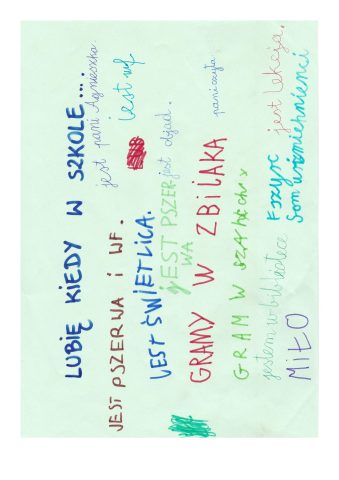 LUBIĘ KIEDY W SZKOLE....
jest pani Agnieszka
jest wf
JEST PSZERWA I WF.
JEST ŚWIETLICA.
jest obiad.
JEST PSZER
WA
pani czyta.
GRAMY W ZBIJAKA
GRAM W SZAHCHY
jestem w bibliotece
Fszyscy
jest lekcja.
Som uśmiehnienci
MIŁO